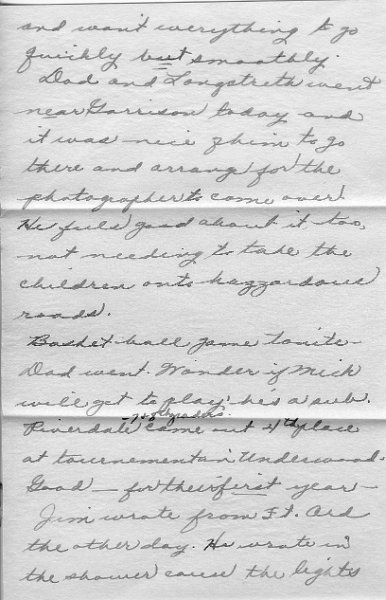 and want everything to go
quickly but smoothly.
Dad and Longstreth went
near Garrison today and
it was nice of him to go
there and arrang for the
photographer to come over.
He feels good about it too,
not needing to take the
children onto hazzardous
roads.
Basket ball game tonite-
Dad went. Wonder if Mick
will get to play. he's a sub.
-7&8 graders.
Riverdale came out 4th place
at tournement in Underwood.
Good - for their first year -
Jim wrote from Ft. Ord
the other day. He wrote in
the shower cause the lights